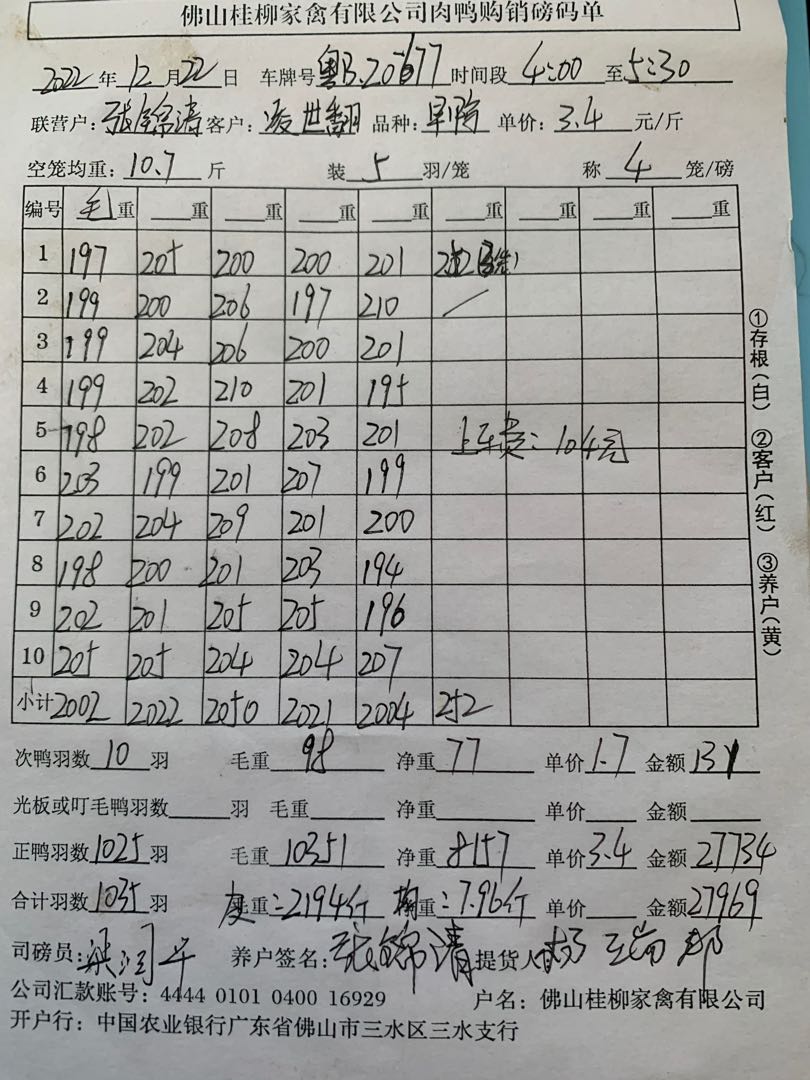 佛山桂柳家禽有限公司肉鸭购销磅码单
2022年12月22日 车牌号粤B.20677 时间段4:00至5:30
联营户:张锦涛 客户:凌世翻 品种: 单价:3.4元/斤
空笼均重:10.7斤 装5羽/笼 称4笼/磅
编号 毛重 重 重 重 重 重 重 重 重
1 197 205 200 200 201 252
2 199 200 206 197 210 /
3 199 204 206 200 201
4 199 202 210 201 195
5 198 202 208 203 201 上车费:104元
6 203 199 201 207 199
7 202 204 209 201 200
8 198 200 201 203 194
9 202 201 205 205 196
10 205 205 204 204 207
小计 2002 2022 2050 2021 2004 252
次鸭羽数10羽 毛重98 净重77 单价1.7 金额131
光板或叮毛鸭羽数 羽 毛重 净重 单价 金额
正鸭羽数1025羽 毛重10351 净重8157 单价3.4 金额27734
合计羽数1035羽 皮重:=2194斤 均重:=7.96斤 单价 金额27969
司磅员:梁润 养户签名:张锦清 提货人:杨
公司汇款账号:4444 0101 0400 16929 户名:佛山桂柳家禽有限公司
开户行:中国农业银行广东省佛山市三水区三水支行
①存根(白) ②客户(红) ③养户(黄)